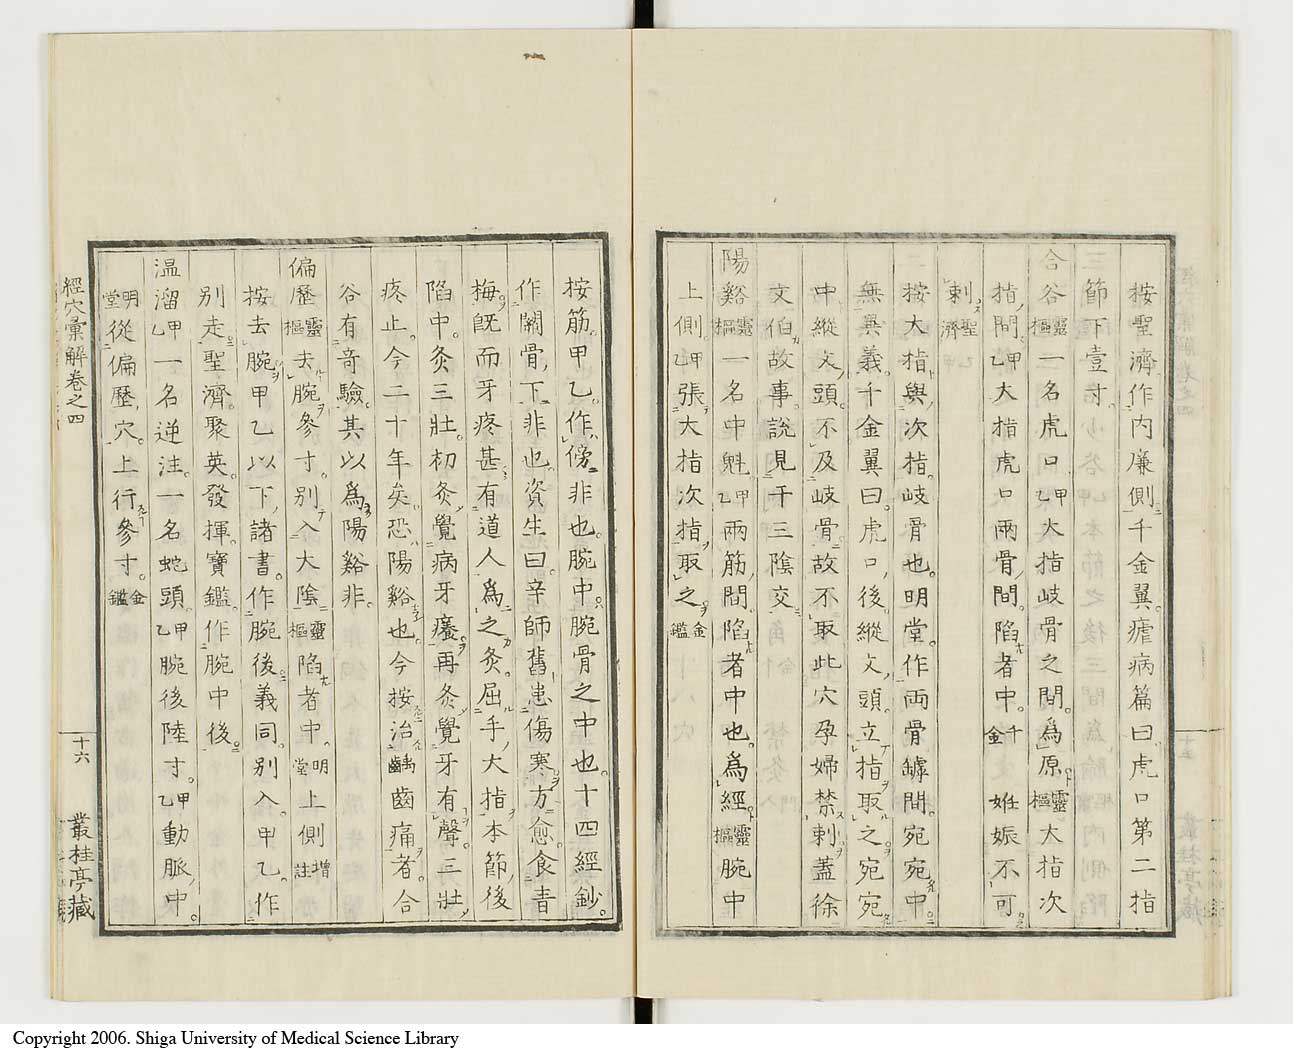 按聖濟作内廉側千金翼瘧病篇曰虎口第二指
節下壹寸
合谷靈樞一名虎口甲乙大指岐骨之間爲原靈樞大指次
指間甲乙大指虎口兩骨間陷者中千金姙娠不可
刺聖濟
按大指與次指岐骨也明堂作両骨罅間宛宛中
無異義千金翼曰虎口後縱文頭立指取之宛宛
中縱文頭不及岐骨故不取此穴孕婦禁刺蓋徐
文伯故事説見于三陰交
陽谿靈樞一名中魁甲乙兩筋間陷者中也爲經靈樞腕中
上側甲乙張大指次指取之金鑑
按筋甲乙作傍非也腕中腕骨之中也十四經鈔
作關骨下非也資生曰辛師舊患傷寒方愈食青
梅既而牙疼甚有道人爲之灸屈手大指本節後
陷中灸三壯初灸覺病牙癢再灸覺牙有聲三壯
疼止今二十年矣恐陽谿也今按治齲齒痛者合
谷有竒驗其以爲陽谿非
偏歷靈樞去腕參寸別入大陰靈樞陷者中明堂上側増註
按去腕甲乙以下諸書作腕後義同別入甲乙作
別走聖濟聚英發揮寶鑑作腕中後
温溜甲乙一名逆注一名蛇頭甲乙腕後陸寸甲乙動脈中
明堂從偏歷穴上行參寸金鑑
經穴彙解卷之四
十六
叢桂亭藏
Copyright 2006. Shiga University of Medical Science Library